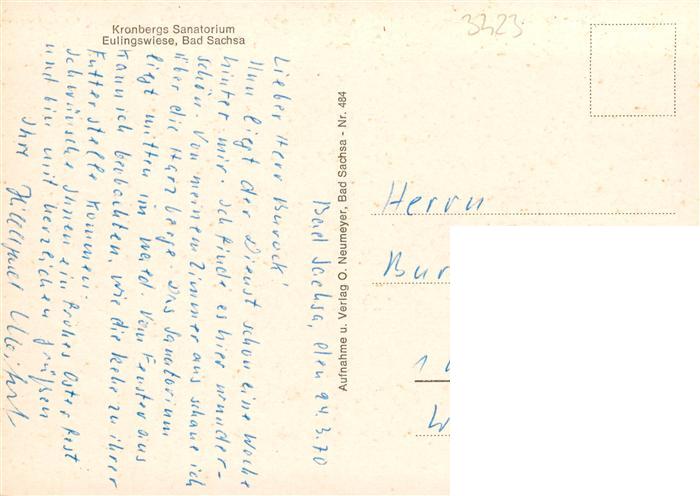 Kronbergs Sanatorium
Eulingswiese, Bad Sachsa
3223
Bad Sachsa, den 24.3.70
Lieber Herr Burock!
Nun liegt der Dienst schon eine Woche
hinter mir. Ich finde es hier wunder-
schön. Von meinem Zimmer aus schaue ich
über die Harzberge. Das Sanatorium
liegt mitten im Wald. Vom Fenster aus
kann ich beobachten, wie die Rehe zu ihrer
Futterstelle kommen.
Ich wünsche Ihnen ein frohes Osterfest
und bin mit herzlichen Grüßen
Ihre Hildegard
Aufnahme u. Verlag O. Neumeyer, Bad Sachsa - Nr. 484
Herrn
Bur
1
W